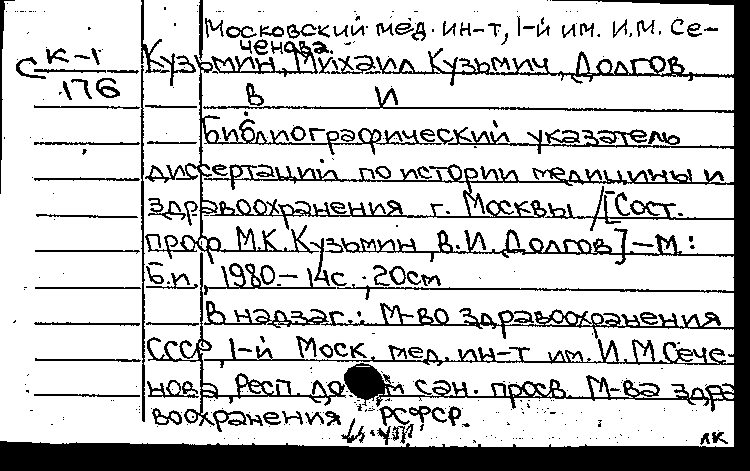 Московский мед. ин-т, 1-й им. И.М. Се-
ченова.
С К-1
176
Кузьмин, Михаил Кузьмич, Долгов,
В И
Библиографический указатель
диссертаций по истории медицины и
здравоохранения г. Москвы /[Сост.
проф. М.К. Кузьмин, В.И. Долгов].-М.:
Б.и., 1980.-14с.; 20см
В надзаг.: М-во здравоохранения
СССР, 1-й Моск. мед. ин-т им. И.М.Сече-
нова, Респ. до м сан. просв. М-ва здра
воохранения РСФСР.
ЛК